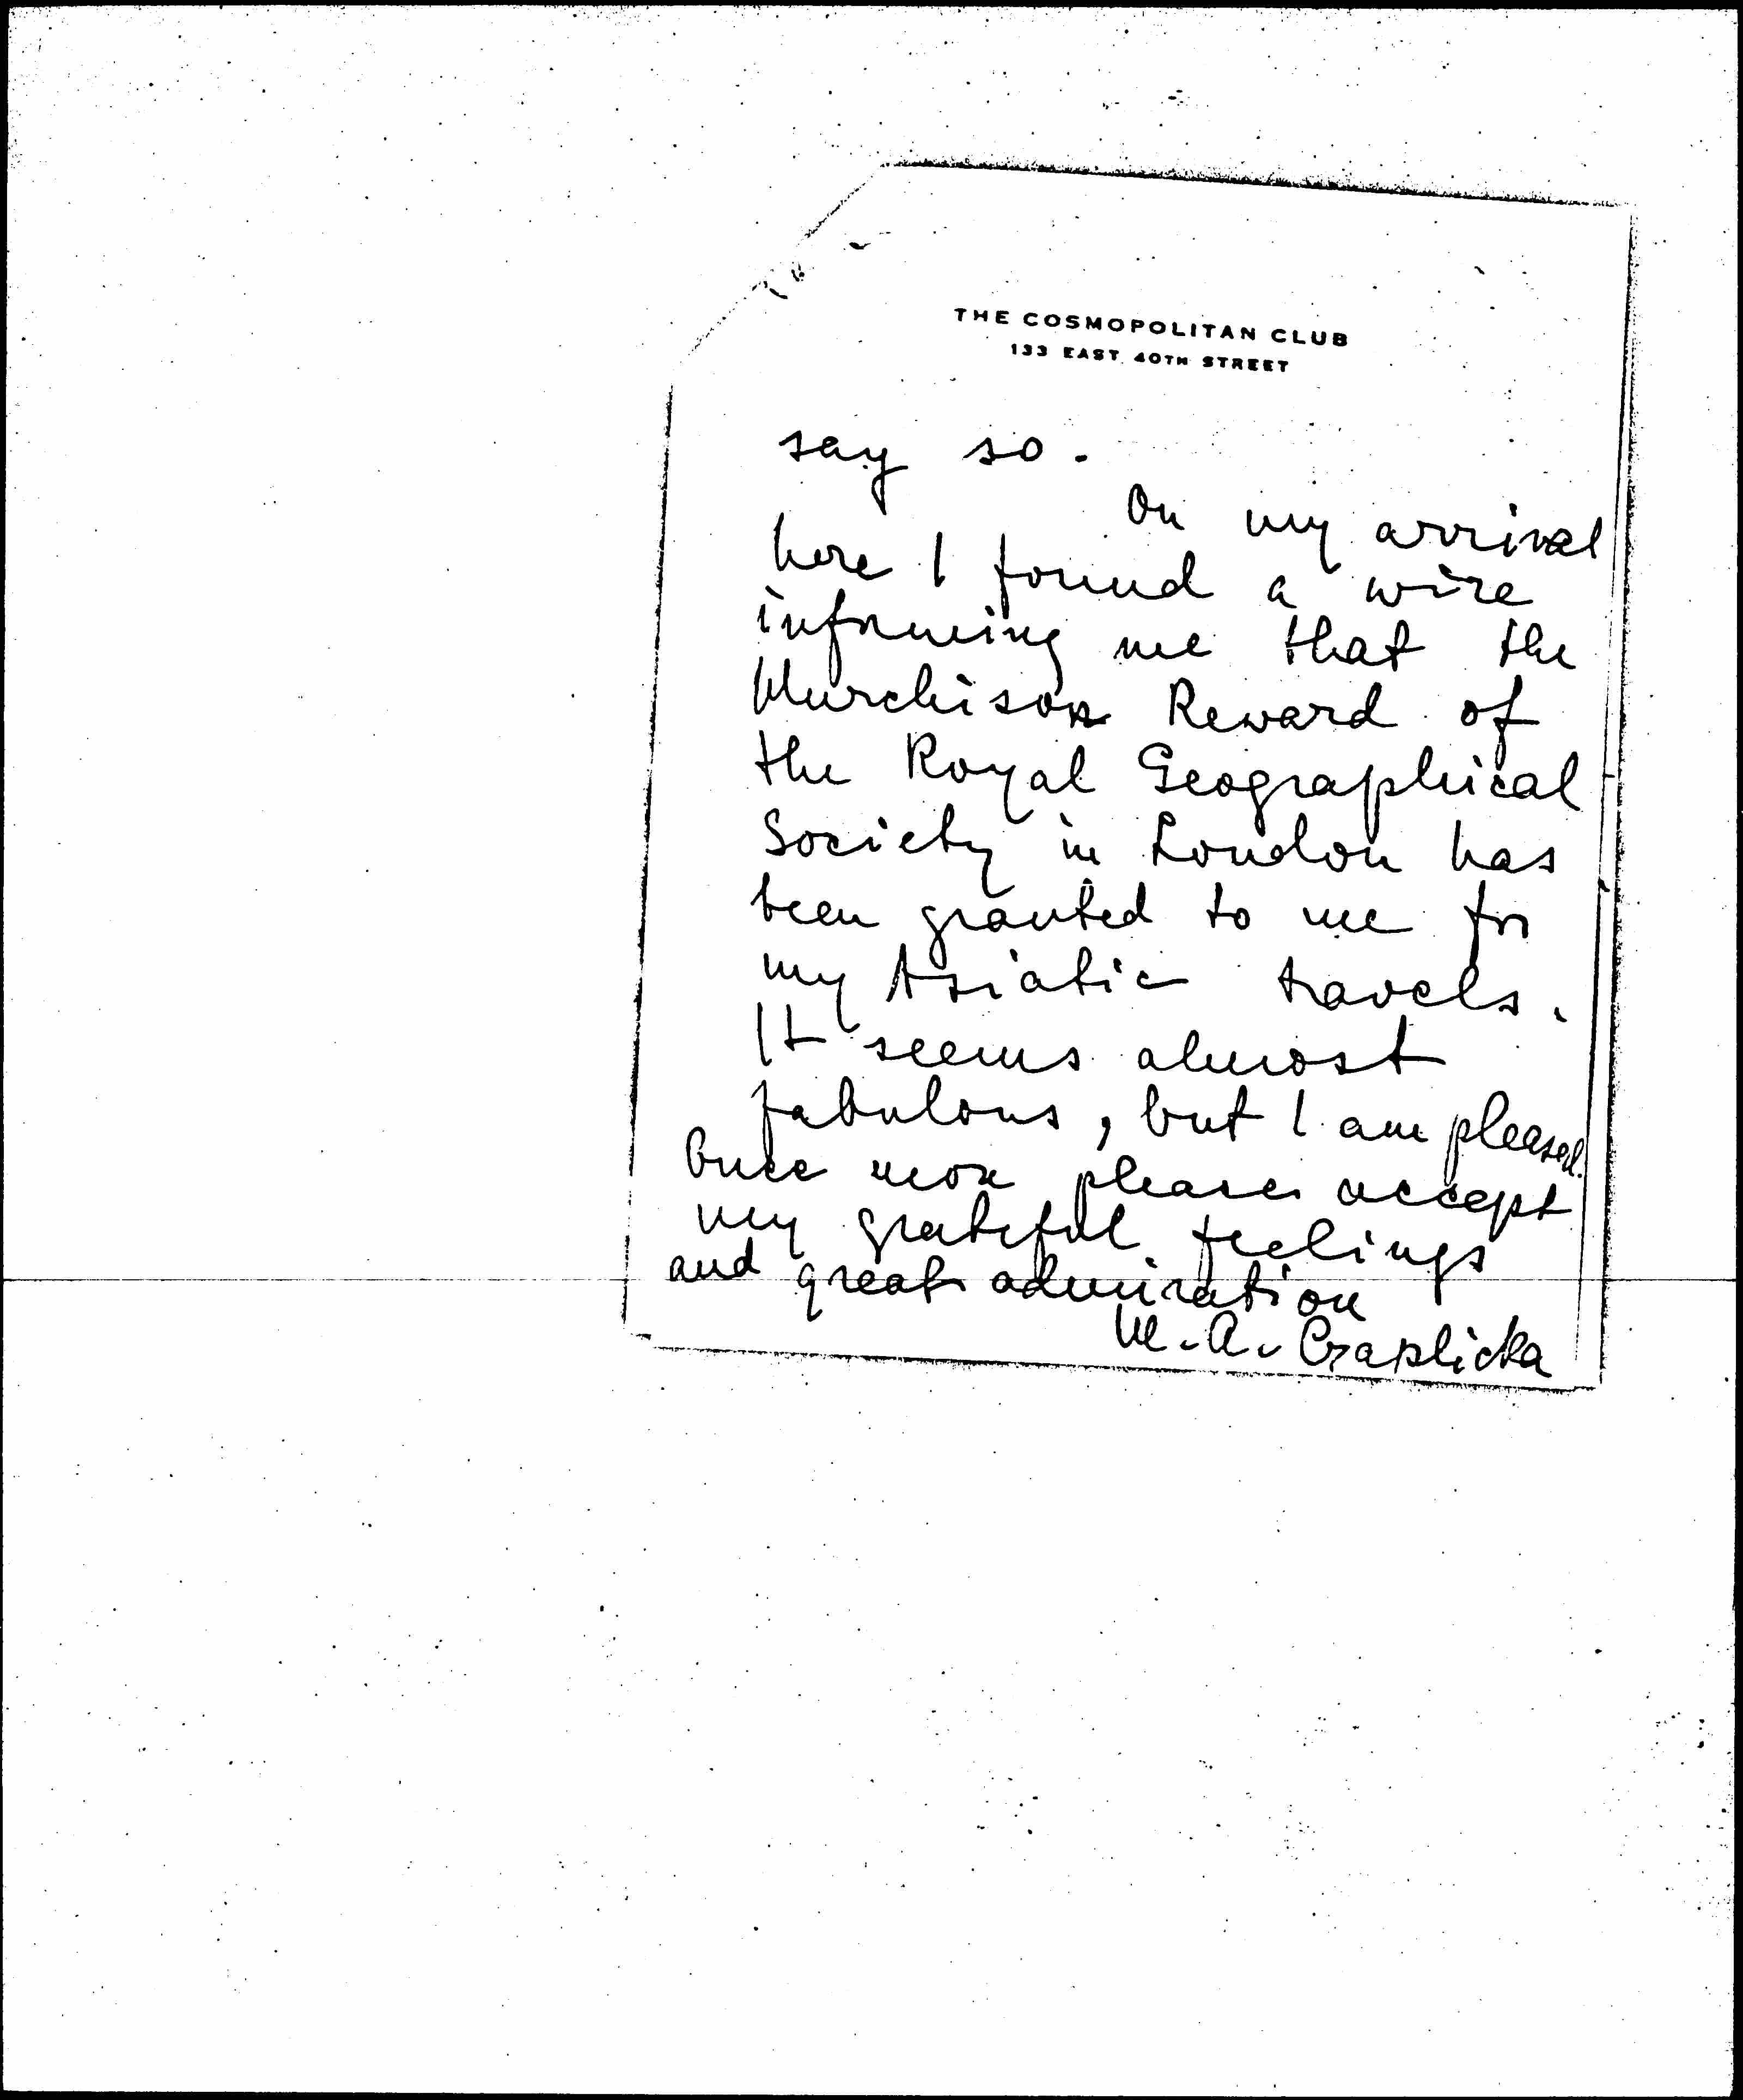 THE COSMOPOLITAN CLUB
133 EAST 40TH STREET
say so.
On my arrival
here I found a wire
informing me that the
Murchison Reward of
the Royal Geographical
Society in London has
been granted to me for
my Asiatic travels.
It seems almost
fabulous, but I am pleased.
Once more please accept
my grateful feelings
and great admiration
M.A. Czaplicka